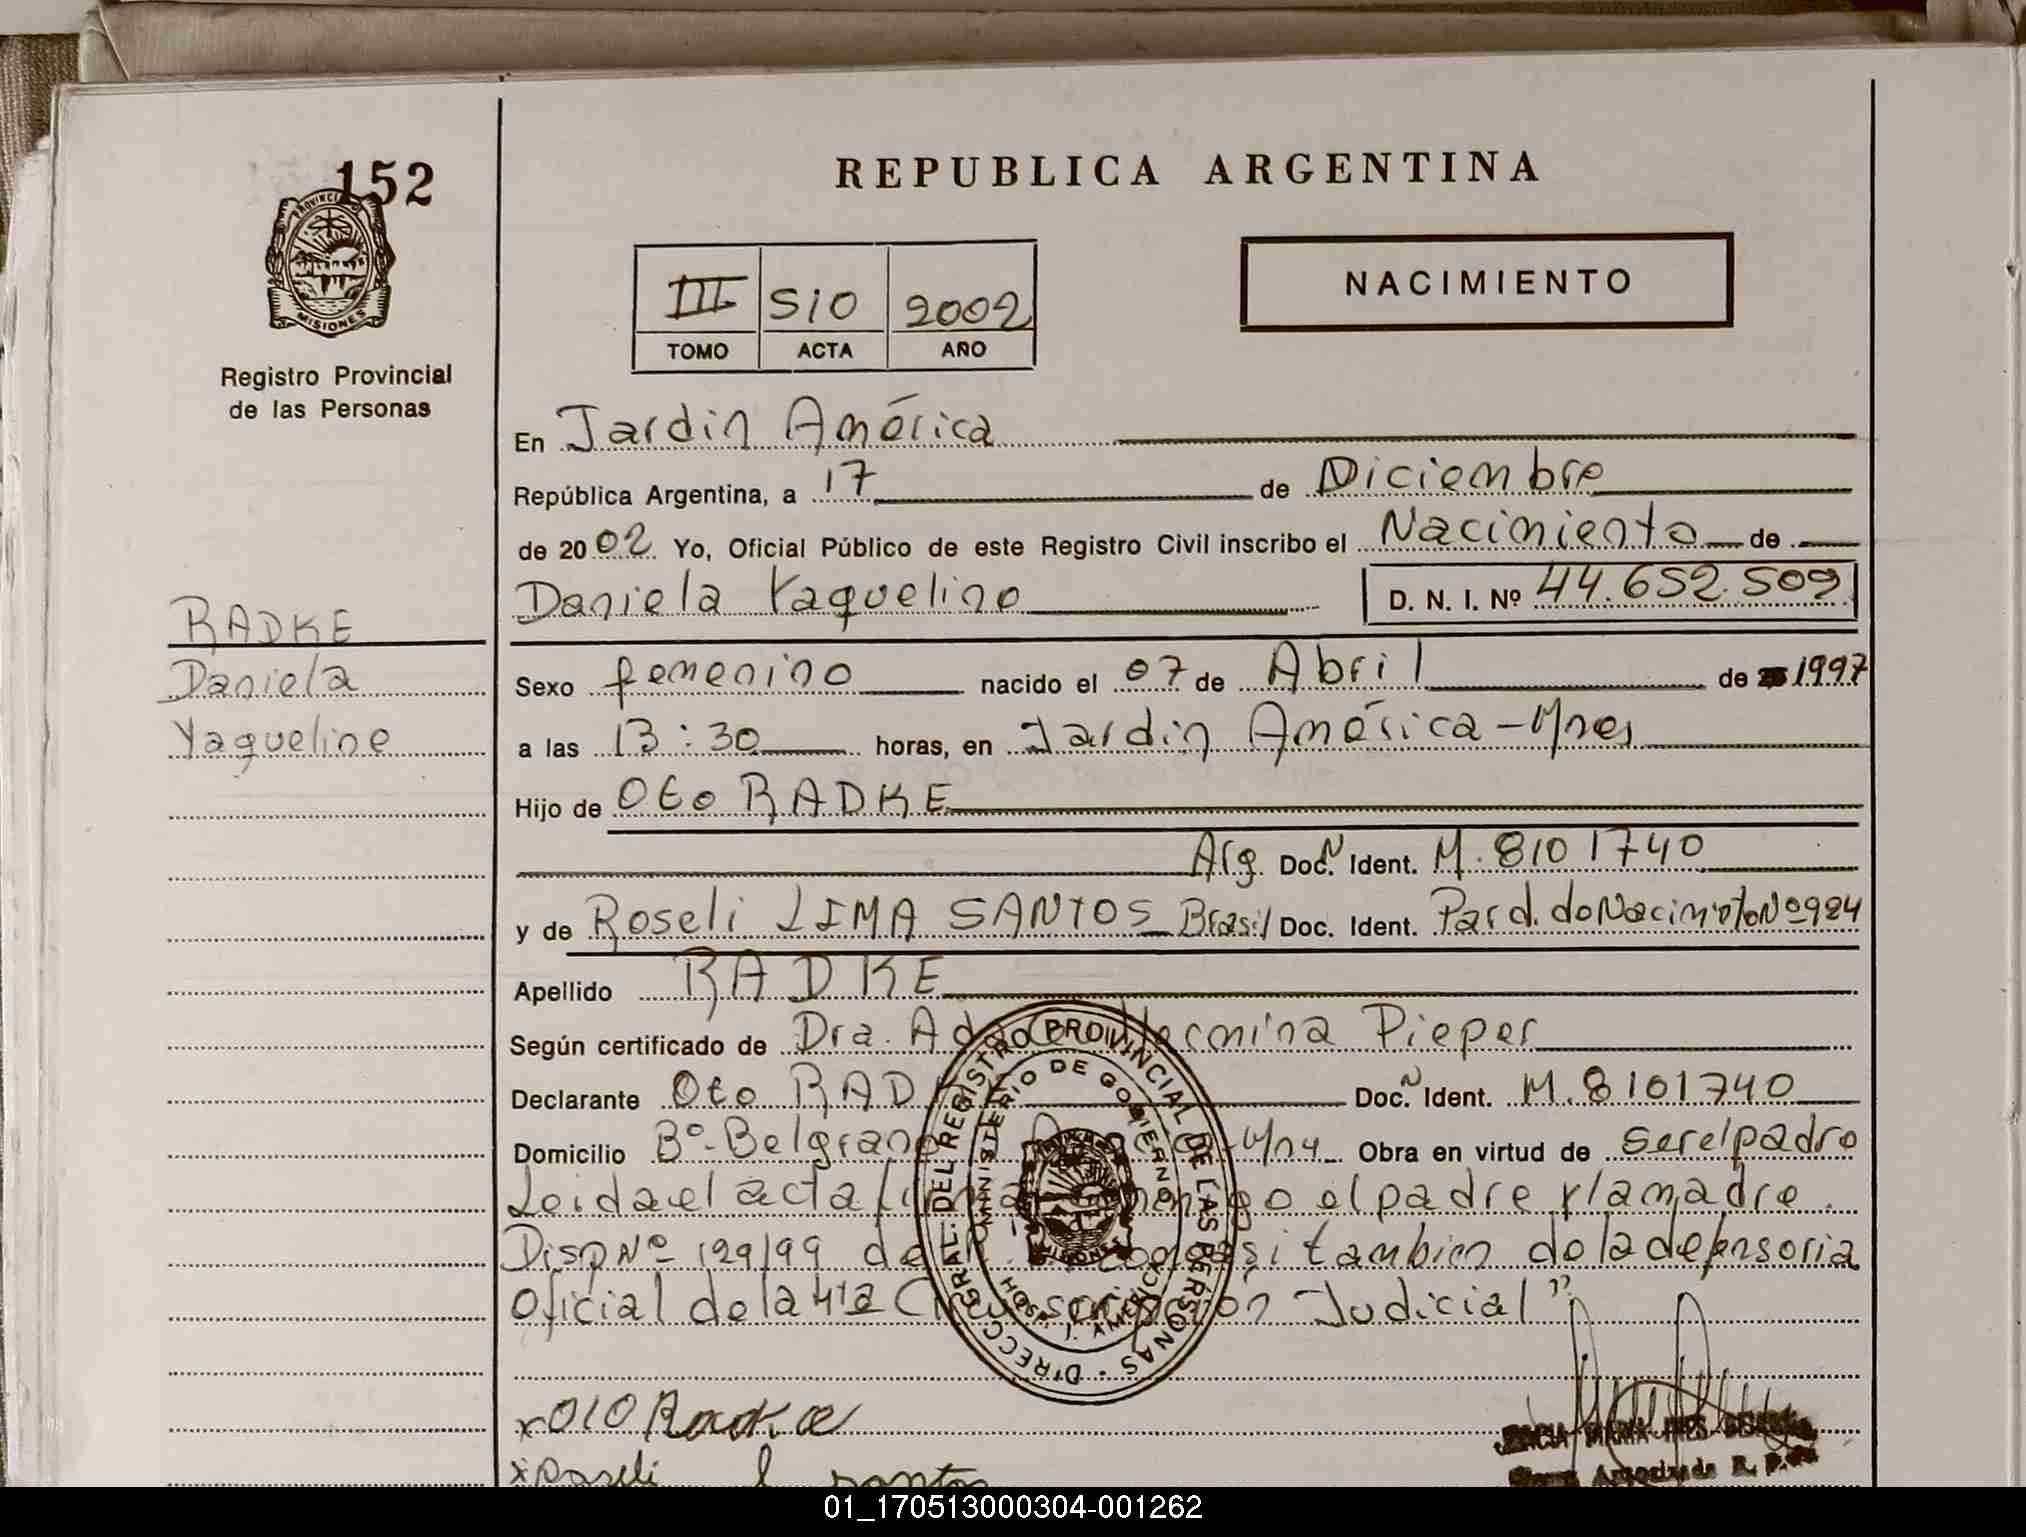 152
PROVINCIA
MISIONES
Registro Provincial
de las Personas
REPUBLICA ARGENTINA
NACIMIENTO
III 510 2002
TOMO ACTA AÑO
En Jardin América
República Argentina, a 17 de Diciembre
de 2002 Yo, Oficial Público de este Registro Civil inscribo el Nacimiento de
Daniela Yaqueline D. N. I. Nº 44.652.509
RADKE
Daniela
Yaqueline
Sexo femenino nacido el 07 de Abril de 1997
a las 13:30 horas, en Jardin América - Mnes
Hijo de Oto RADKE
Arg. Doc. N Ident. M. 8101740
y de Roseli LIMA SANTOS Brasil Doc. Ident. Part. de Nacimiento Nº 924
Apellido RADKE
Según certificado de Dra. Hermina Pieper
Declarante Oto RADKE Doc. N Ident. M. 8101740
Domicilio Bº Belgrano Obra en virtud de ser el padre
Leida el acta el padre y la madre.
Disp Nº 129/99 de asi tambien de la defensoria
Oficial de la 4ta Circunscripcion Judicial"
DIRECC. GRAL. DEL REGISTRO PROVINCIAL DE LAS PERSONAS
MINISTERIO DE GOBIERNO
HOSP. J. AMERICA
MISIONES
x Oto Radke
x Roseli l santos
MARIA INES
Autorizada R. P.
01_170513000304-001262